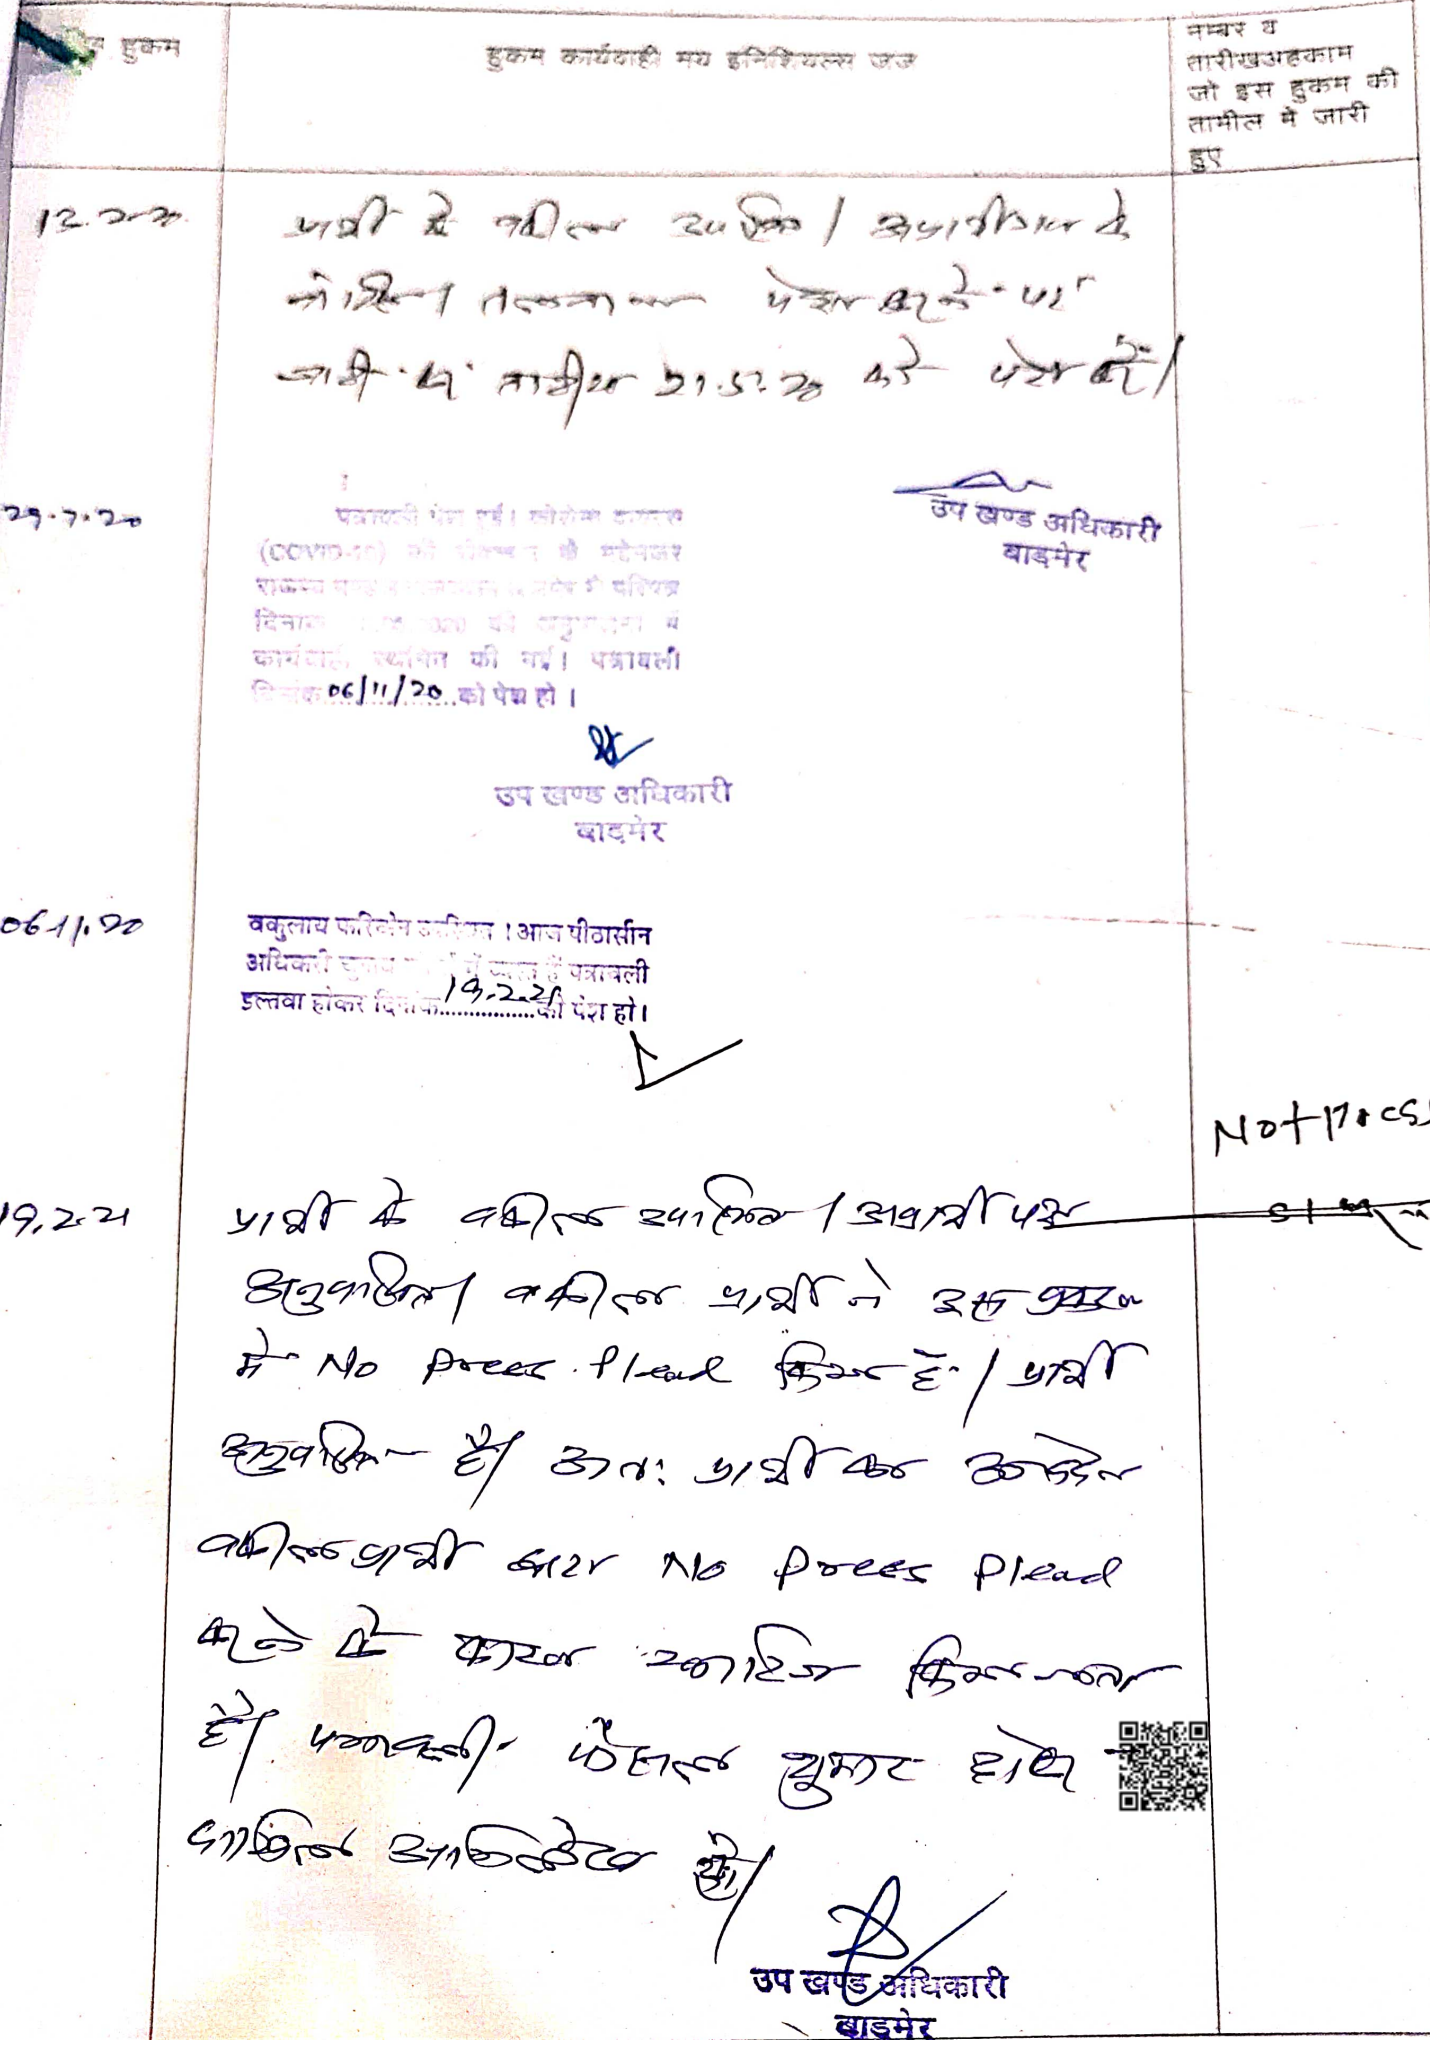 हुकम
हुकम कार्यवाही मय इनिशियल्स जज
नम्बर व
तारीखअहकाम
जो इस हुकम की
तामील मे जारी
हुए
प्रार्थी के वकील उपस्थित। अप्रार्थीगण के
पेश करने पर
जारी कर तारीख को पेश करें।
उप खण्ड अधिकारी
बाड़मेर
29.7.20
पत्रावली पेश हुई। कोरोना वायरस
(COVID-19) की के मद्देनजर
परिपत्र
दिनांक की में
कार्यवाही स्थगित की गई। पत्रावली
दिनांक 06/11/20 को पेश हो।
उप खण्ड अधिकारी
बाड़मेर
06.11.20
वकुलाय फरिकेन उपस्थित। आज पीठासीन
अधिकारी चुनाव में व्यस्त है पत्रावली
इल्तवा होकर दिनांक 19.2.21 को पेश हो।
19.2.21
प्रार्थी के वकील उपस्थित। अप्रार्थी पक्ष
अनुपस्थित। वकील प्रार्थी ने इस प्रकरण
में No Prees Plead किया है। प्रार्थी
अनुपस्थित है। अतः प्रार्थी का आवेदन
वकील प्रार्थी द्वारा No Prees Plead
करने के कारण खारिज किया जाता
है। पत्रावली फैसल शुमार होकर
दाखिल अभिलेख हो।
उप खण्ड अधिकारी
बाड़मेर